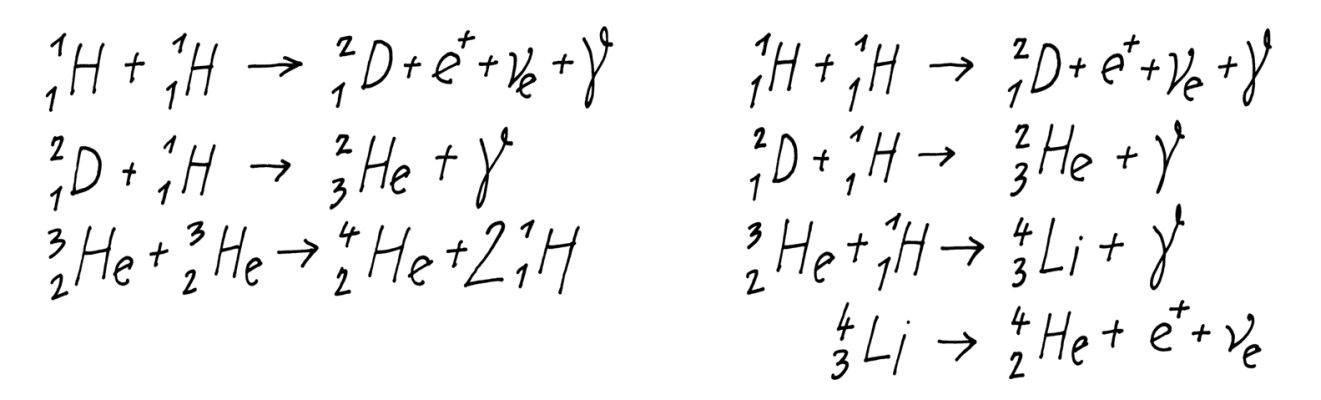 ¹₁H + ¹₁H → ²₁D + e⁺ + νₑ + γ
²₁D + ¹₁H → ²₃He + γ
³₂He + ³₂He → ⁴₂He + 2¹₁H
¹₁H + ¹₁H → ²₁D + e⁺ + νₑ + γ
²₁D + ¹₁H → ²₃He + γ
³₂He + ¹₁H → ⁴₃Li + γ
⁴₃Li → ⁴₂He + e⁺ + νₑ